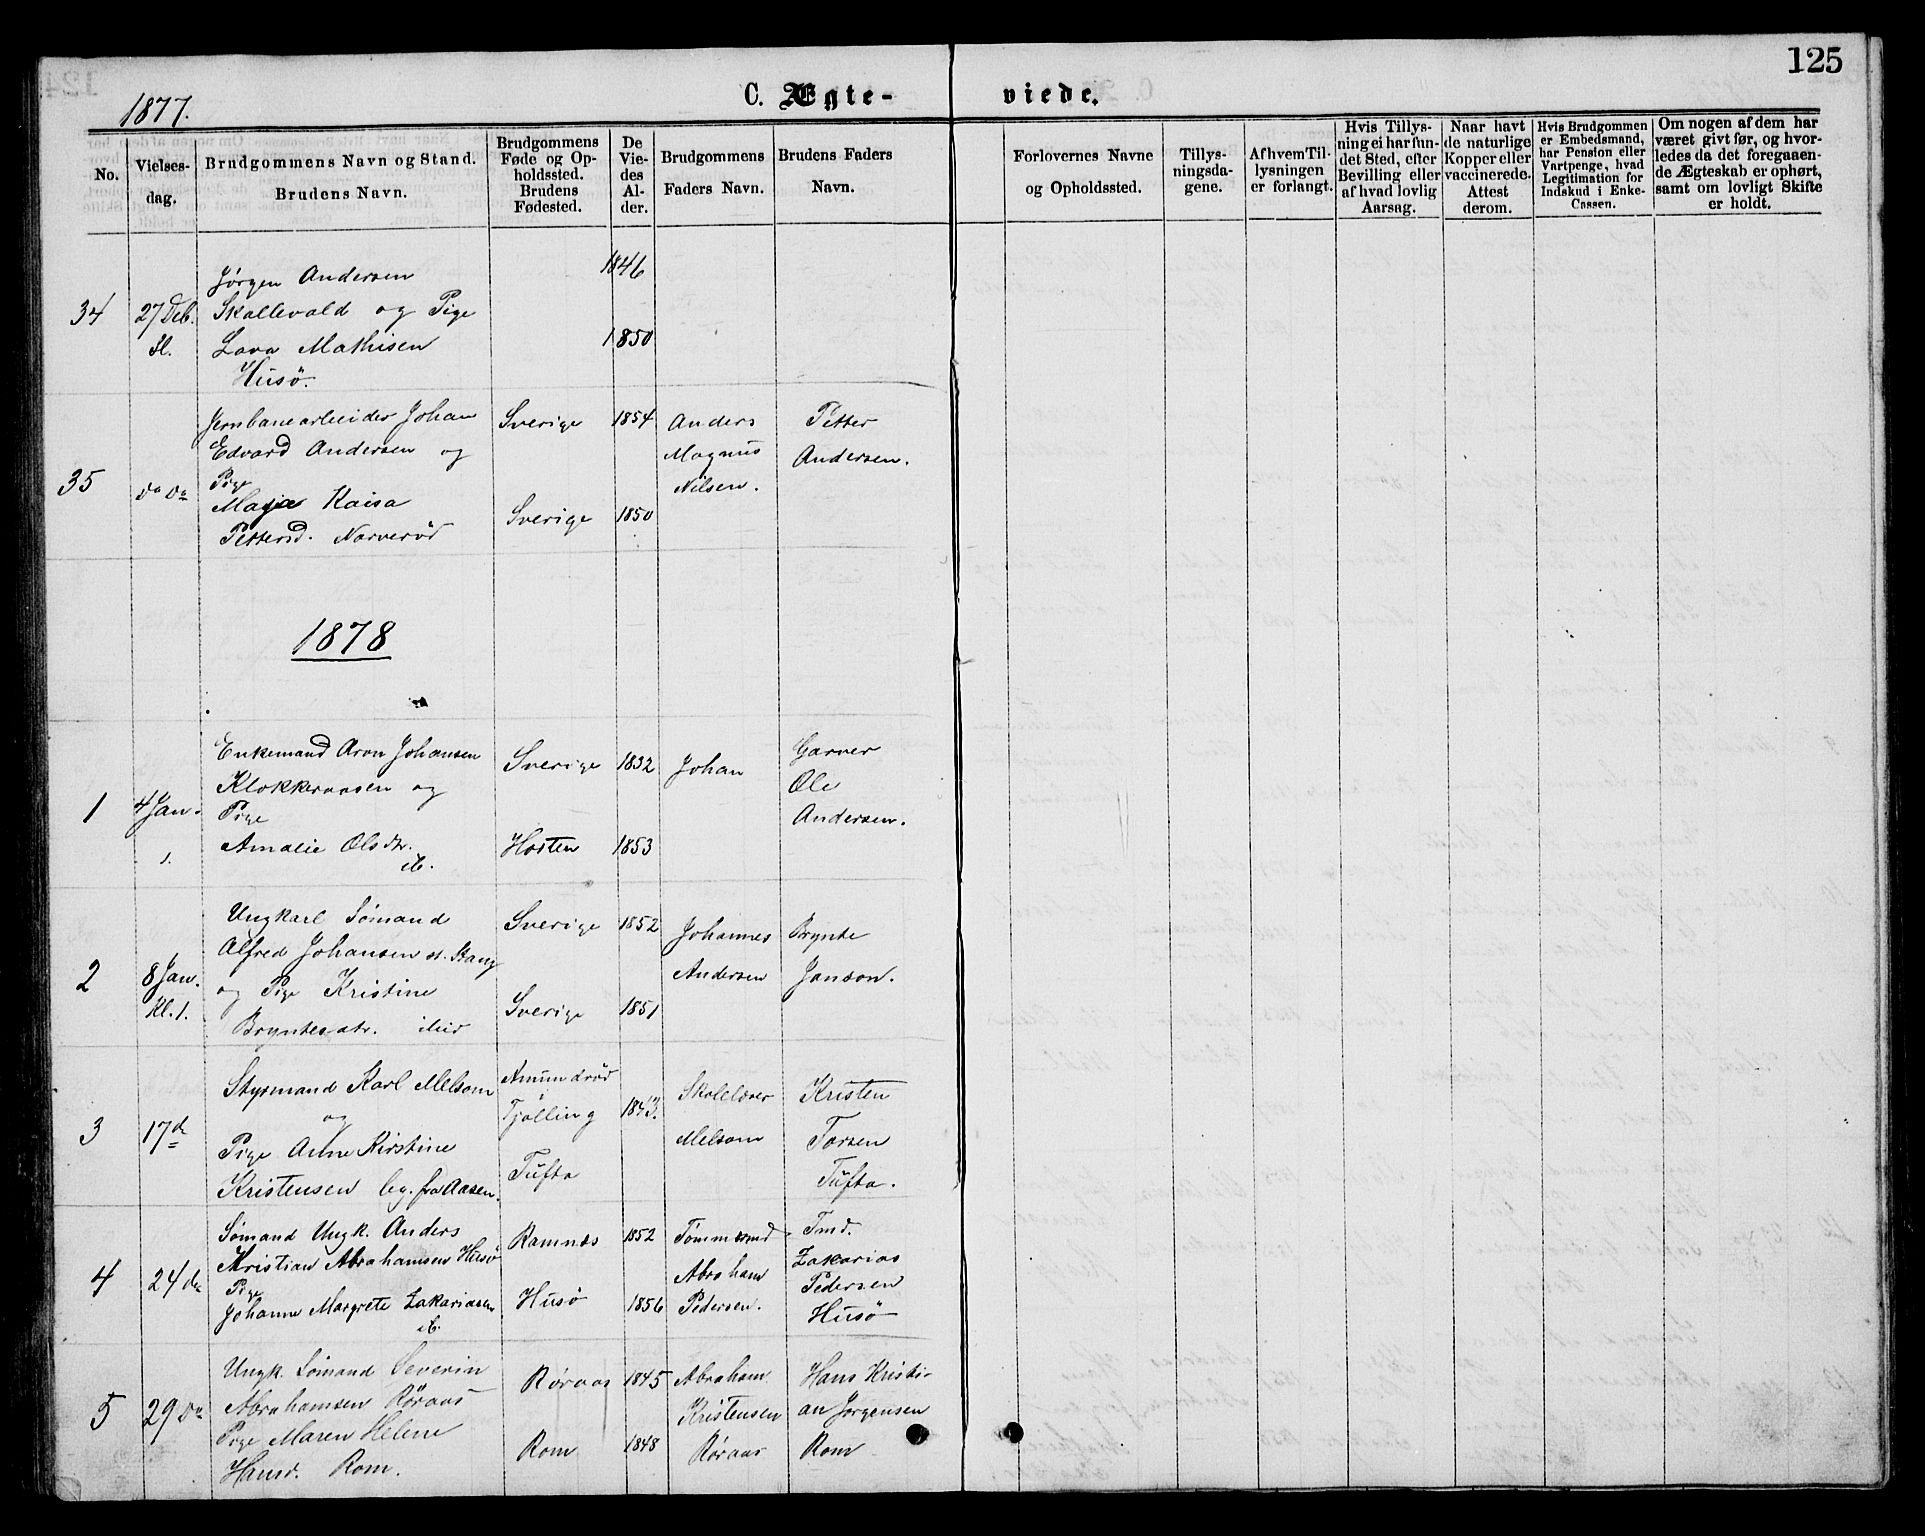 125
1877.
C. Ægte-
viede.
No.
Vielses-
dag.
Brudgommens Navn og Stand.
Brudens Navn.
Brudgommens
Føde og Op-
holdssted.
Brudens
Fødested.
De
Vie-
des
Al-
der.
Brudgommens
Faders Navn.
Brudens Faders
Navn.
Forlovernes Navne
og Opholdssted.
Tillys-
ningsda-
gene.
Af hvem Til-
lysningen
er forlangt.
Hvis Tillys-
ning ei har fun-
det Sted, efter
Bevilling eller
af hvad lovlig
Aarsag.
Naar havt
de naturlige
Kopper eller
vaccinerede.
Attest
derom.
Hvis Brudgommen
er Embedsmand,
har Pension eller
Vartpenge, hvad
Legitimation for
Indskud i Enke-
Cassen.
Om nogen af dem har
været givt før, og hvor-
ledes da det foregaaen-
de Ægteskab er ophørt,
samt om lovligt Skifte
er holdt.
34
27 Deb.
Jørgen Andersen
Skallevald og Pige
Lava Mathisen
Husö.
1846
1850
35
do do
Jernbanearbeider Johan
Edvard Andersen og
Pige
Maja Kaisa
Pettersd. Narverød
Sverige
Sverige
1854
1850
Anders
Magnus
Nilsen.
Petter
Andersen.
1878
1
4 Jan.
1.
Enkemand Aron Johansen
Klokkeraasen og
Pige
Amalie Olsdtr.
ib.
Sverige
Horten
1832
1853
Johan
Garver
Ole
Andersen.
2
8 Jan.
Kl. 1.
Ungkarl Sömand
Alfred Johansen st. Kany
og Pige Kristine
Bryntesdtr. ibid
Sverige
Sverige
1852
1851
Johannes
Andersen
Brynte
Janson.
3
17 d
Styrmand Karl Melsom
og
Pige Anne Kirstine
Kristensen by. fra Aasen.
Amundrød
Tjølling
Tüfta
1843.
Skolelærer
Melsom
Kristen
Torsen
Tüfta.
4
24 do
Sømand Ungk. Anders
Kristian Abrahamsen Husø
Pige
Johanne Margrete Zakariasen
ib.
Ramnæs
Husö
1852
1856
Tømmermd
Abraham
Pedersen.
Tmd.
Zakarias
Pedersen
Husö
5
29 do
Ungk. Sömand Severin
Abrahamsen Röraas
Pige Maren Helene
Hansd. Rom.
Röraas
Rom
1845
1848
Abraham
Kristensen
Röraas
Hans Kristi-
an Jørgensen
Rom